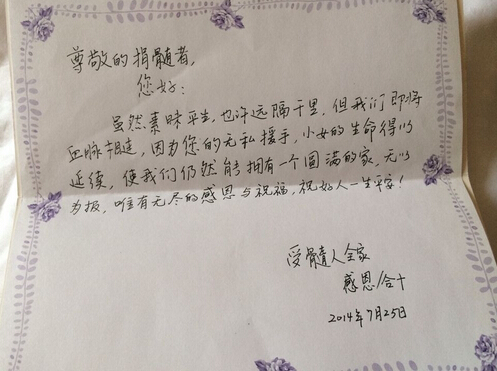 尊敬的捐髓者，
您好：
虽然素昧平生，也许远隔千里，但我们即将
血脉相连，因为您的无私援手，小女的生命得以
延续，使我们仍然能拥有一个圆满的家，无以
为报，唯有无尽的感恩与祝福，祝好人一生平安！
受髓人全家
感恩合十
2014年7月25日